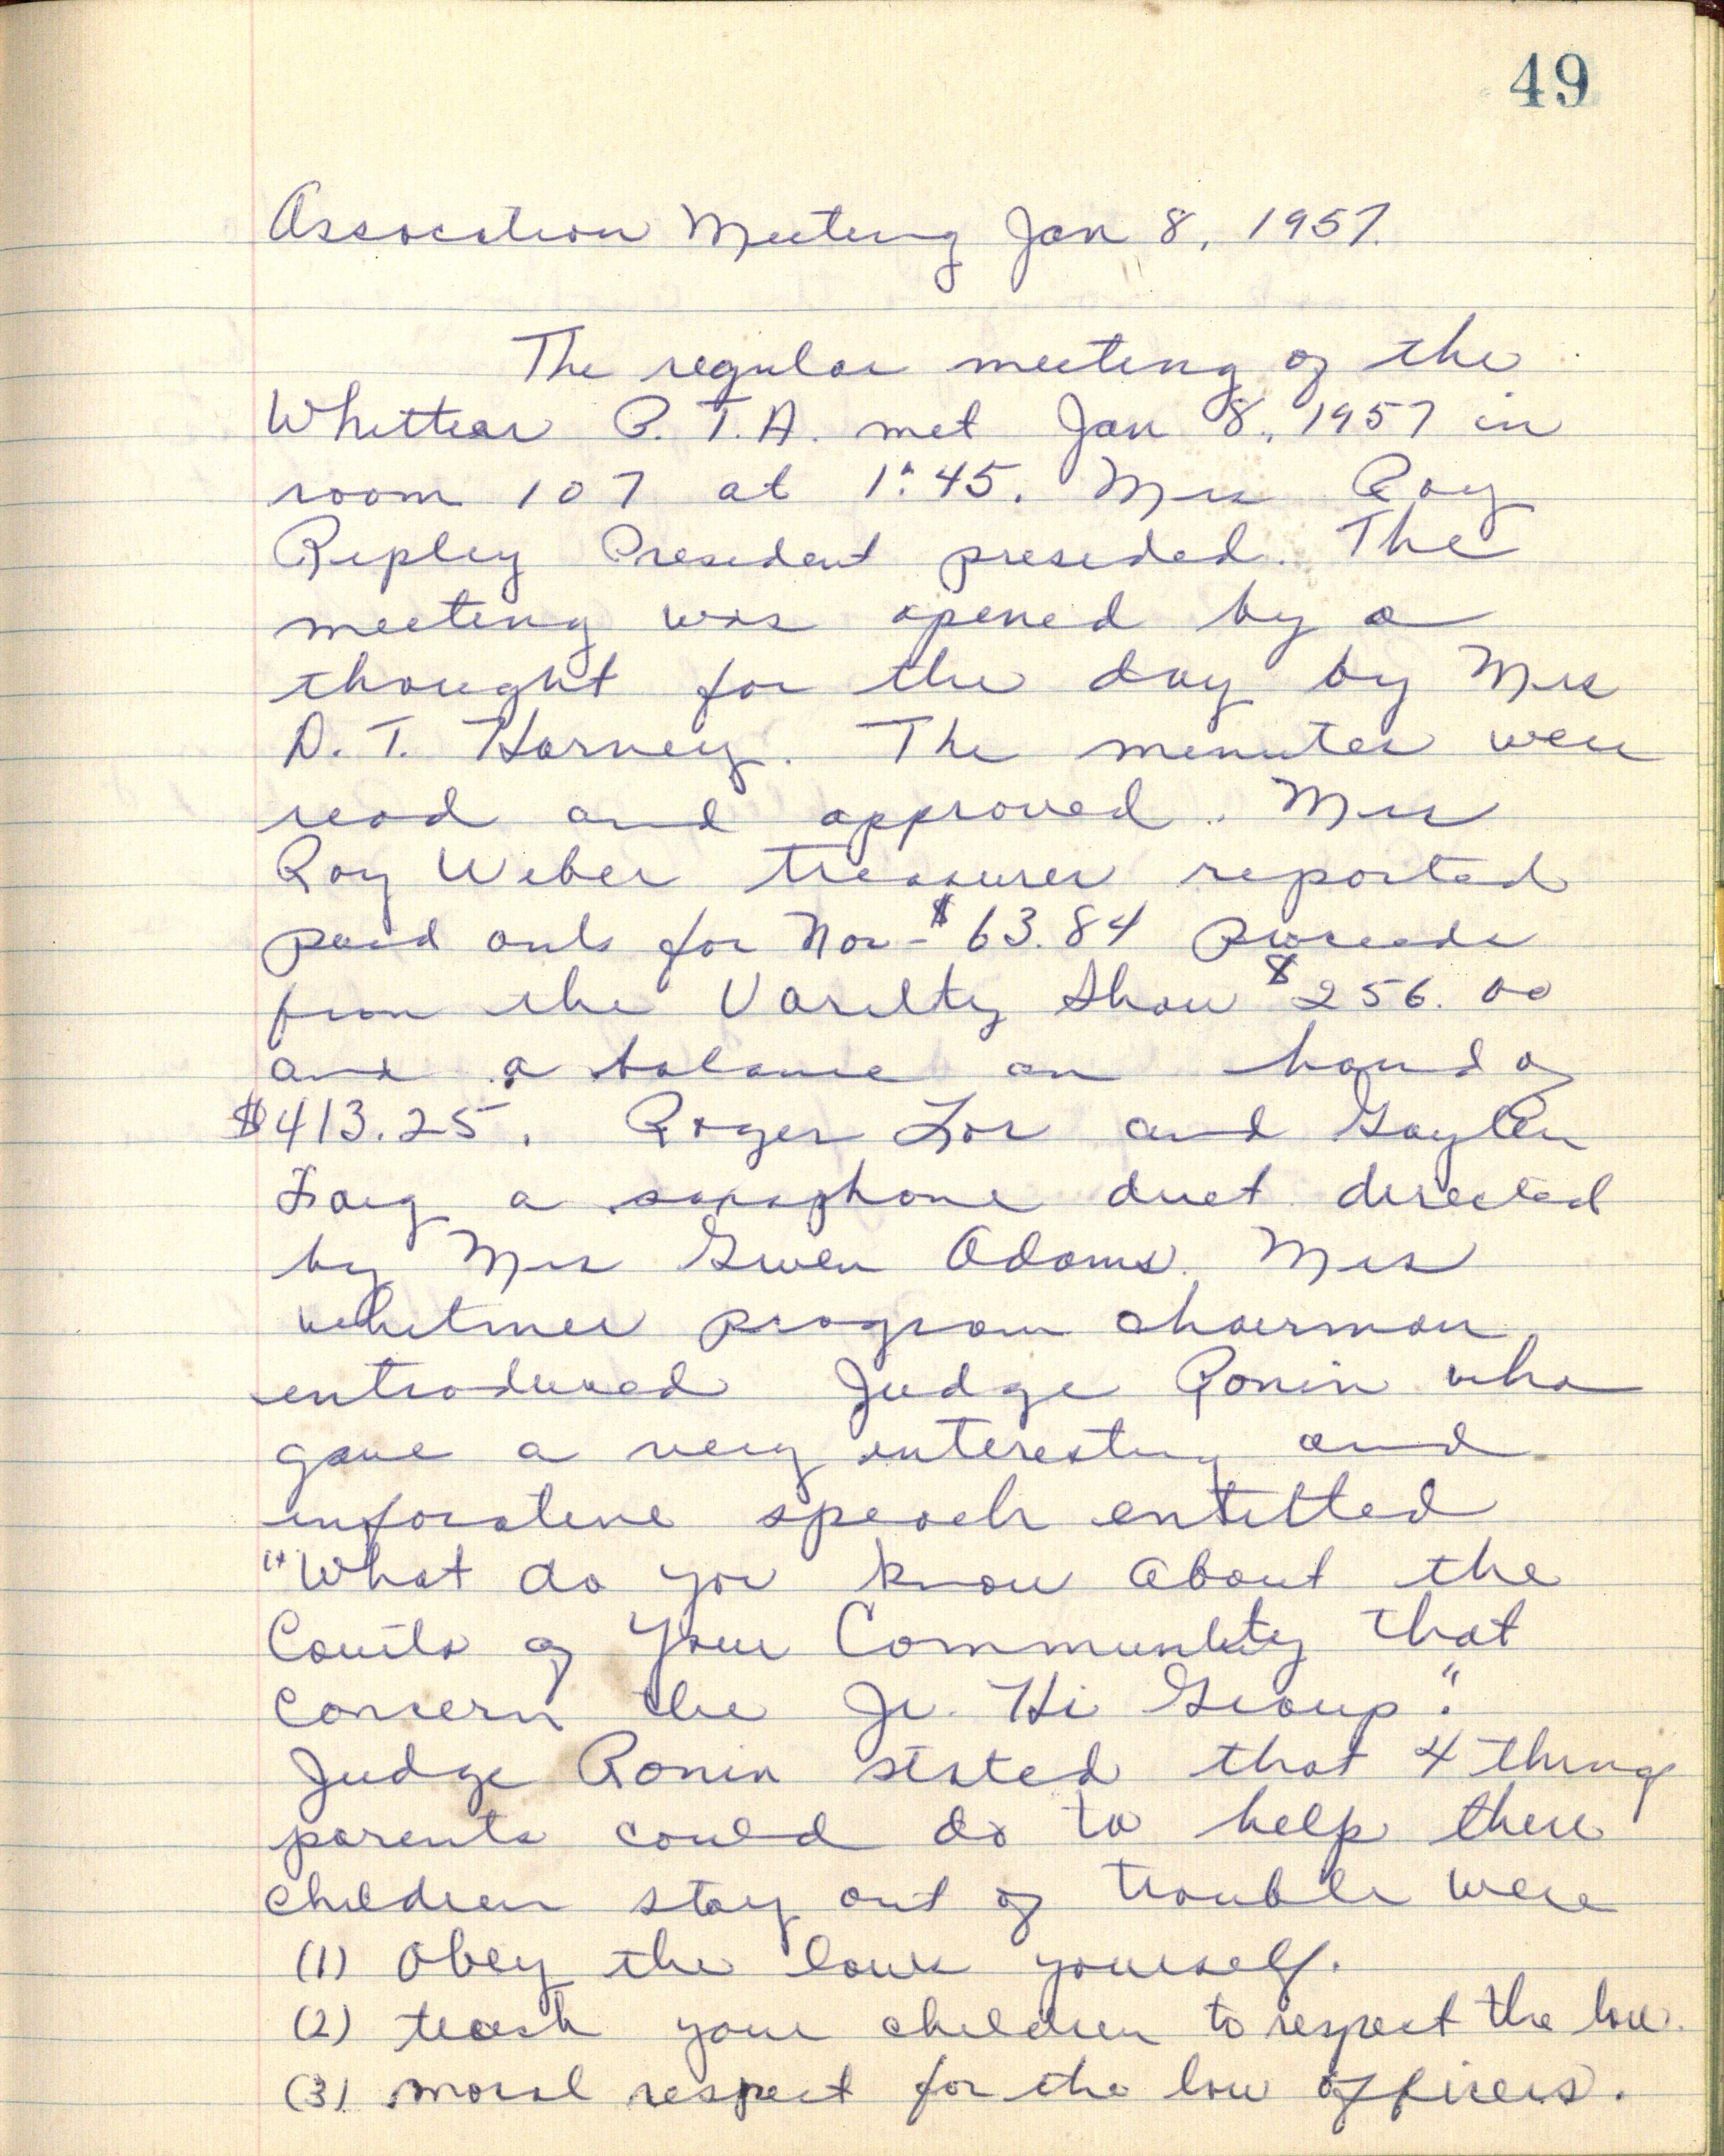 49
Assocation Meeting Jan 8, 1957.
The regular meeting of the
Whittear P.T.A. met Jan 8, 1957 in
room 107 at 1:45. Mrs Roy
Ripley President presided. The
meeting was opened by a
thought for the day by Mrs
D. T. Harvey. The minutes were
read and approved. Mrs
Roy Weber treasurer reported
paid outs for Nov - $63.84 Proceeds
from the Varilty Show $256.00
and a balance on hand of
$413.25. Roger and Gaylen
a saxaphone duet directed
by Mrs Gwen Adams. Mrs
Whitmer program chairman
introduced Judge Ronin who
gave a very interesting and
inforative speach entitled
"What do you know about the
Courts of Your Community that
Concern the Jr. Hi Group".
Judge Ronin stated that 4 things
parents could do to help there
children stay out of trouble were
(1) Obey the laws yourself.
(2) teach your children to respect the law.
(3) moral respect for the law officers.